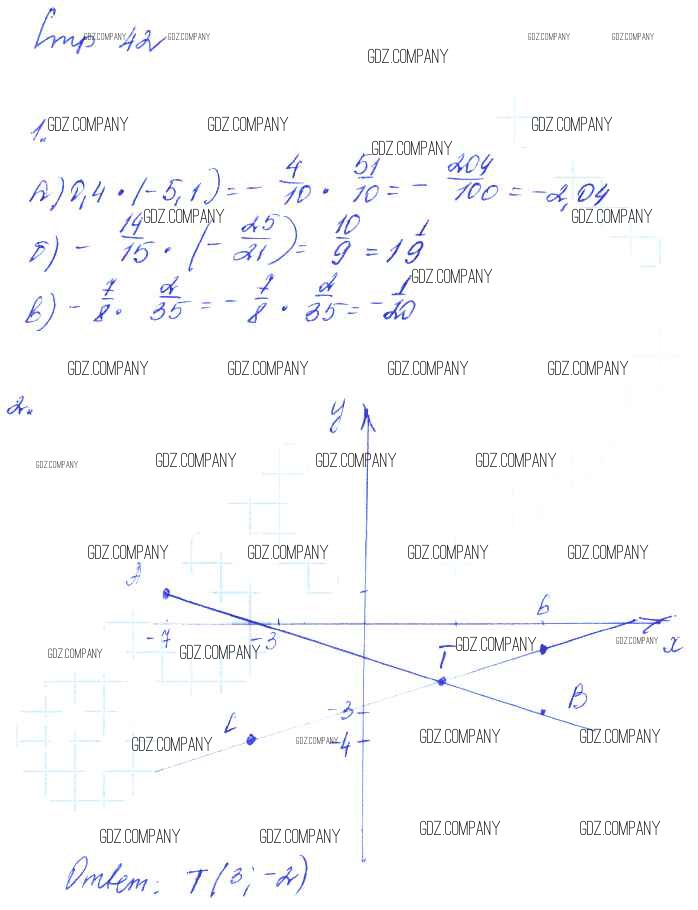 Стр 42
GDZ.COMPANY GDZ.COMPANY GDZ.COMPANY GDZ.COMPANY
GDZ.COMPANY
1.
GDZ.COMPANY GDZ.COMPANY GDZ.COMPANY
GDZ.COMPANY
А) 0,4 · (-5,1) = - 4/10 · 51/10 = - 204/100 = -2,04
GDZ.COMPANY GDZ.COMPANY
Б) - 14/15 · (- 25/21) = 10/9 = 1 1/9
GDZ.COMPANY
В) - 7/8 · 2/35 = - 7/8 · 2/35 = - 1/20
GDZ.COMPANY GDZ.COMPANY GDZ.COMPANY GDZ.COMPANY
2.
y
GDZ.COMPANY GDZ.COMPANY GDZ.COMPANY GDZ.COMPANY
GDZ.COMPANY GDZ.COMPANY GDZ.COMPANY GDZ.COMPANY
A
6
-7 -3
GDZ.COMPANY x
GDZ.COMPANY GDZ.COMPANY T GDZ.COMPANY
B
-3
L
GDZ.COMPANY GDZ.COMPANY -4 GDZ.COMPANY GDZ.COMPANY
GDZ.COMPANY GDZ.COMPANY GDZ.COMPANY GDZ.COMPANY
Ответ: T (3; -2)